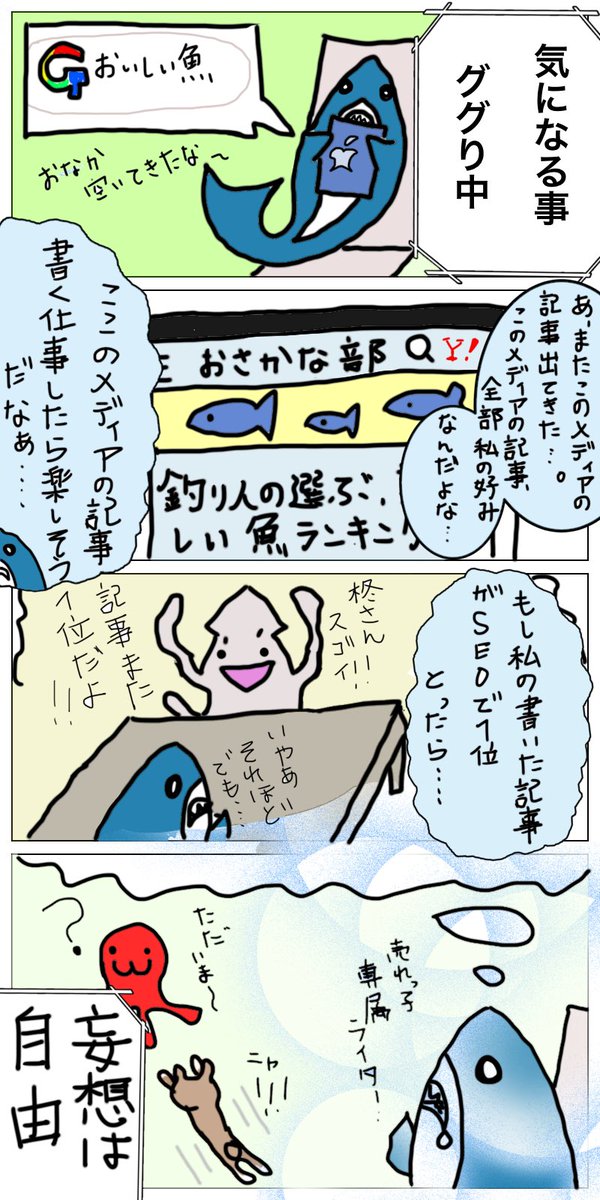 気になる事
ググり中
G おいしい魚
おなか
空いてきたな〜
あ、またこのメディアの
記事出てきた…。
このメディアの記事、
全部私の好み
なんだよな…
おさかな部
Y!
釣り人の選ぶ、
しい魚ランキング
ここのメディアの記事
書く仕事したら楽しそう
だなぁ…
もし私の書いた記事
がSEOで1位
とったら…
柊さん!!
スゴイ!
記事また
1位だよ
!!!
いやぁ
それほど
でも…
売れっ子
専属
ライター…
ただいま〜
?
ニャ!!!
妄想は
自由